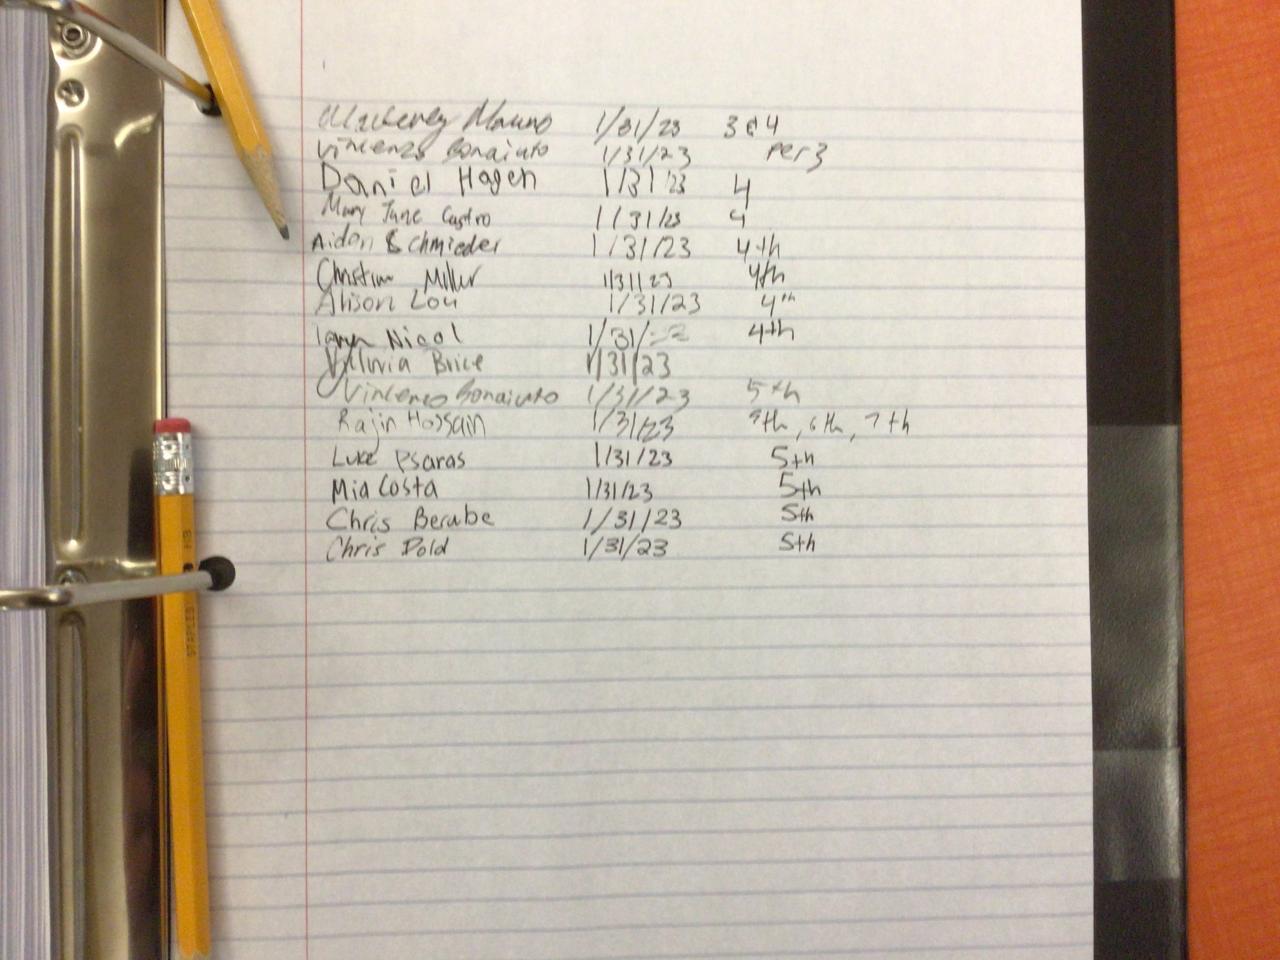 Mauro 1/31/23 3 & 4
Vincenzo Bonaiuto 1/31/23 Per 3
Daniel Hagen 1/31/23 4
Mary Jane Castro 1/31/23 4
Aidan Schmieder 1/31/23 4th
Christina Miller 1/31/23 4th
Alison Lou 1/31/23 4th
Nicol 1/31/ 4th
Brice 1/31/23
Vincenzo Bonaiuto 1/31/23 5th
Rajin Hossain 1/31/23 5th, 6th, 7th
Luke Psaras 1/31/23 5th
Mia Costa 1/31/23 5th
Chris Berube 1/31/23 5th
Chris Dold 1/31/23 5th
STAPLES